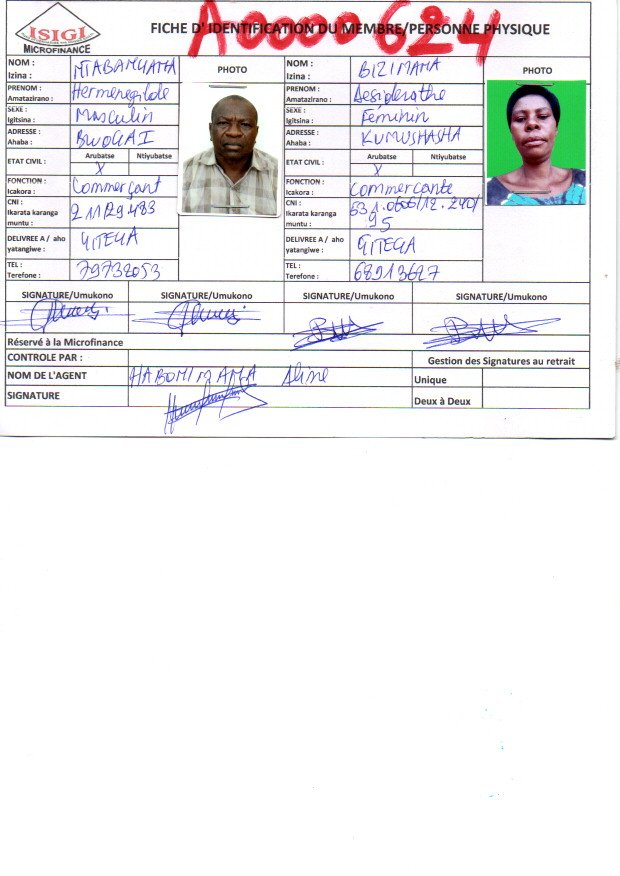 ISIGI
MICROFINANCE
FICHE D' IDENTIFICATION DU MEMBRE/PERSONNE PHYSIQUE
A0000624
NOM :
Izina :
NTABANGANA
PHOTO
NOM :
Izina :
BIZIMANA
PHOTO
PRENOM :
Amatazirano :
Hermenegilde
PRENOM :
Amatazirano :
Desiderathe
SEXE :
Igitsina :
Masculin
SEXE :
Igitsina :
Feminin
ADRESSE :
Ahaba :
BWOGAI
ADRESSE :
Ahaba :
KUMUSHASHA
ETAT CIVIL :
Arubatse
Ntiyubatse
X
ETAT CIVIL :
Arubatse
Ntiyubatse
X
FONCTION :
Icakora :
Commerçant
FONCTION :
Icakora :
Commerçante
CNI :
Ikarata karanga
muntu :
211/29483
CNI :
Ikarata karanga
muntu :
95
DELIVREE A / aho
yatangiwe :
GITEGA
DELIVREE A / aho
yatangiwe :
GITEGA
TEL :
Terefone :
79732053
TEL :
Terefone :
68913627
SIGNATURE/Umukono
SIGNATURE/Umukono
SIGNATURE/Umukono
SIGNATURE/Umukono
Réservé à la Microfinance
CONTROLE PAR :
Gestion des Signatures au retrait
NOM DE L'AGENT
HABONIMANA Aline
Unique
SIGNATURE
Deux à Deux